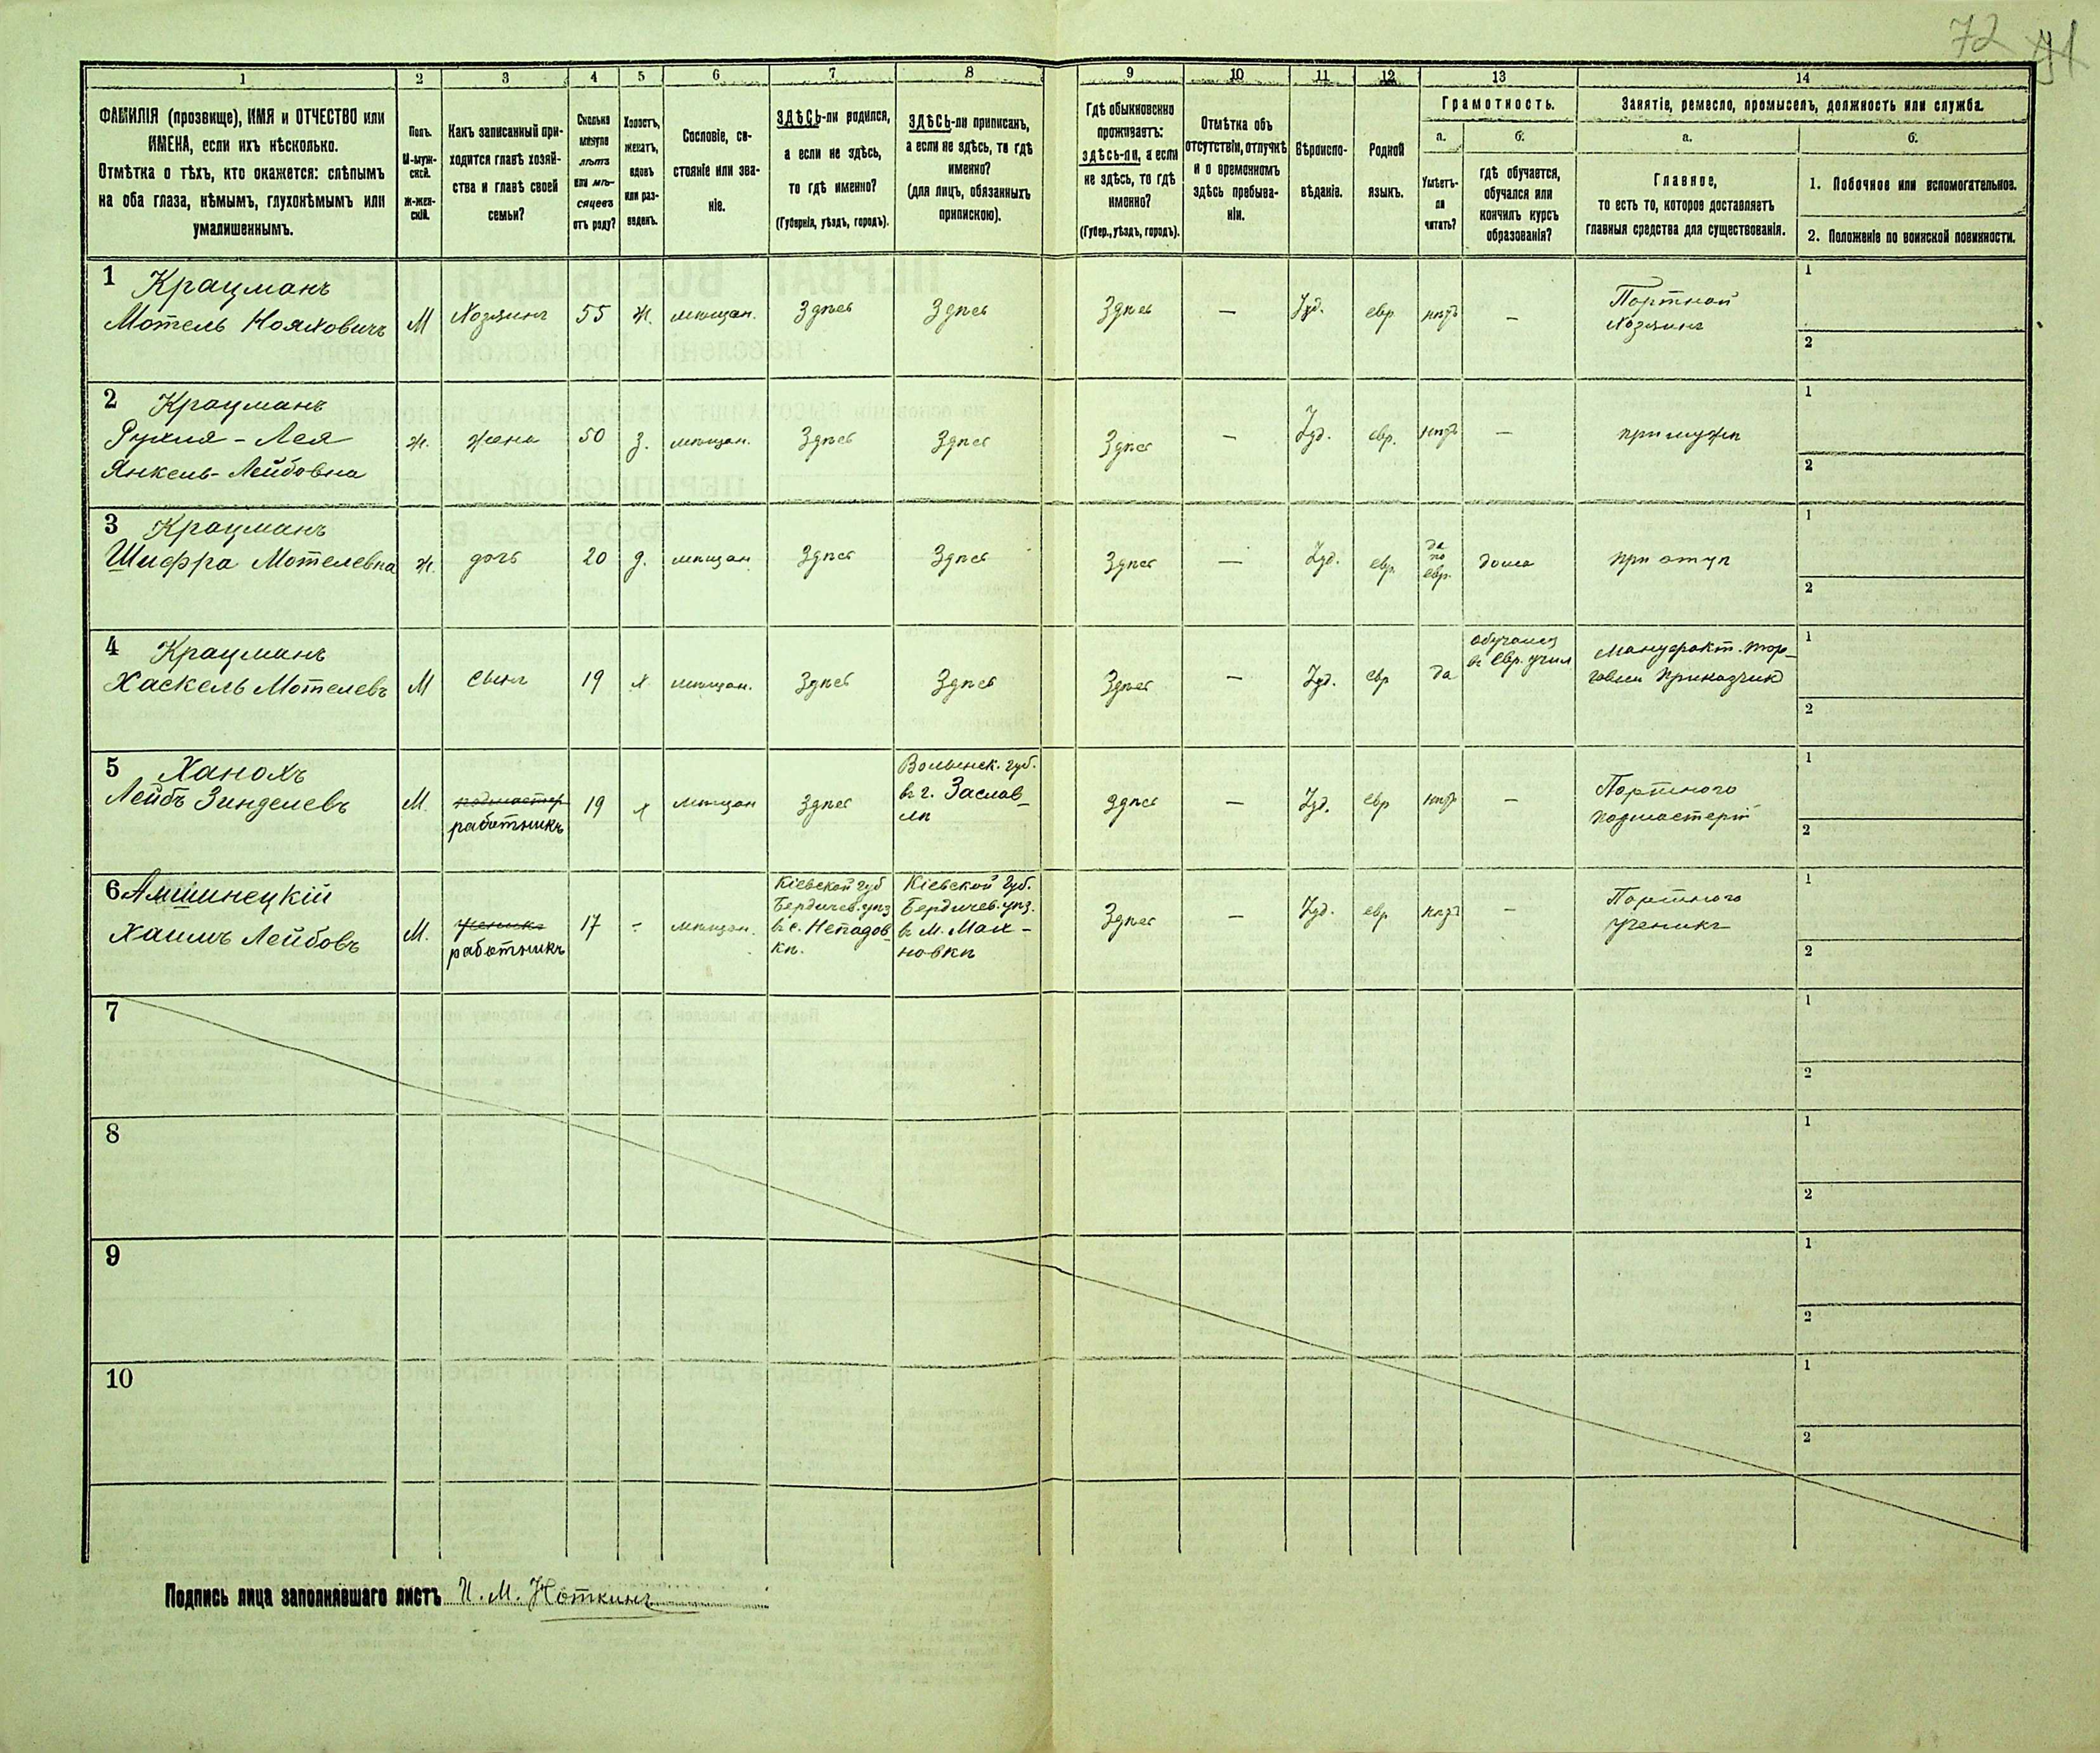 72
1 2 3 4 5 6 7 8 9 10 11 12 13 14
ФАМИЛІЯ (прозвище), ИМЯ и ОТЧЕСТВО или
ИМЕНА, если ихъ нѣсколько.
Отмѣтка о тѣхъ, кто окажется: слѣпымъ
на оба глаза, нѣмымъ, глухонѣмымъ или
умалишеннымъ.
Полъ.
М-муж-
ской.
Ж-жен-
скій.
Какъ записанный при-
ходится главѣ хозяй-
ства и главѣ своей
семьи?
Сколько
минуло
лѣтъ
или мѣ-
сяцевъ
отъ роду?
Холостъ,
женатъ,
вдовъ
или раз-
веденъ.
Сословіе, со-
стояніе или зва-
ніе.
ЗДѢСЬ-ли родился,
а если не здѣсь,
то гдѣ именно?
(Губернія, уѣздъ, городъ).
ЗДѢСЬ-ли приписанъ,
а если не здѣсь, то гдѣ
именно?
(для лицъ, обязанныхъ
припискою).
Гдѣ обыкновенно
проживаетъ:
здѣсь-ли, а если
не здѣсь, то гдѣ
именно?
(Губер., уѣздъ, городъ).
Отмѣтка объ
отсутствіи, отлучкѣ
и о временномъ
здѣсь пребыва-
ніи.
Вѣроиспо-
вѣданіе.
Родной
языкъ.
Грамотность.
а.
Умѣетъ-
ли
читать?
б.
гдѣ обучается,
обучался или
кончилъ курсъ
образованія?
Занятіе, ремесло, промыселъ, должность или служба.
а.
Главное,
то есть то, которое доставляетъ
главныя средства для существованія.
б.
1. Побочное или вспомогательное.
2. Положеніе по воинской повинности.
1 Крацманъ
Мотель Нояховичъ М Хозяинъ 55 ж. мѣщан. Здѣсь Здѣсь Здѣсь — Іуд. евр. нѣтъ — Портной
Хозяинъ
1
2
2 Крацманъ
Рухля - Лея ж. жена 50 з. мѣщан. Здѣсь Здѣсь Здѣсь — Іуд. евр. нѣтъ — при мужѣ
Янкель-Лейбовна
1
2
3 Крацманъ
Шифра Мотелевна ж. дочь 20 д. мѣщан. Здѣсь Здѣсь Здѣсь — Іуд. евр. да
по
евр. дома при отцѣ
1
2
4 Крацманъ
Хаскель Мотелевъ М сынъ 19 х мѣщан. Здѣсь Здѣсь Здѣсь — Іуд. евр да обучался
въ Евр. учил Мануфакт. тор-
говли Приказчик
1
2
5 Ханохъ
Лейбъ Зинделевъ М. подмастер
работникъ 19 х мѣщан Здѣсь Волынск. губ.
въ г. Заслав-
лѣ Здѣсь — Іуд. евр нѣтъ — Портного
подмастерій
1
2
6 Амшинецкій
Хаимъ Лейбовъ М. ученикъ
работникъ 17 - мѣщан. Кіевской губ
Бердичев. уѣз
въ с. Непадов-
кѣ. Кіевской Губ.
Бердичев. уѣз.
въ М. Мах-
новкѣ Здѣсь — Іуд. евр нѣтъ — Портного
ученикъ
1
2
7
1
2
8
1
2
9
1
2
10
1
2
Подпись лица заполнявшаго листъ И. М. Ноткинъ